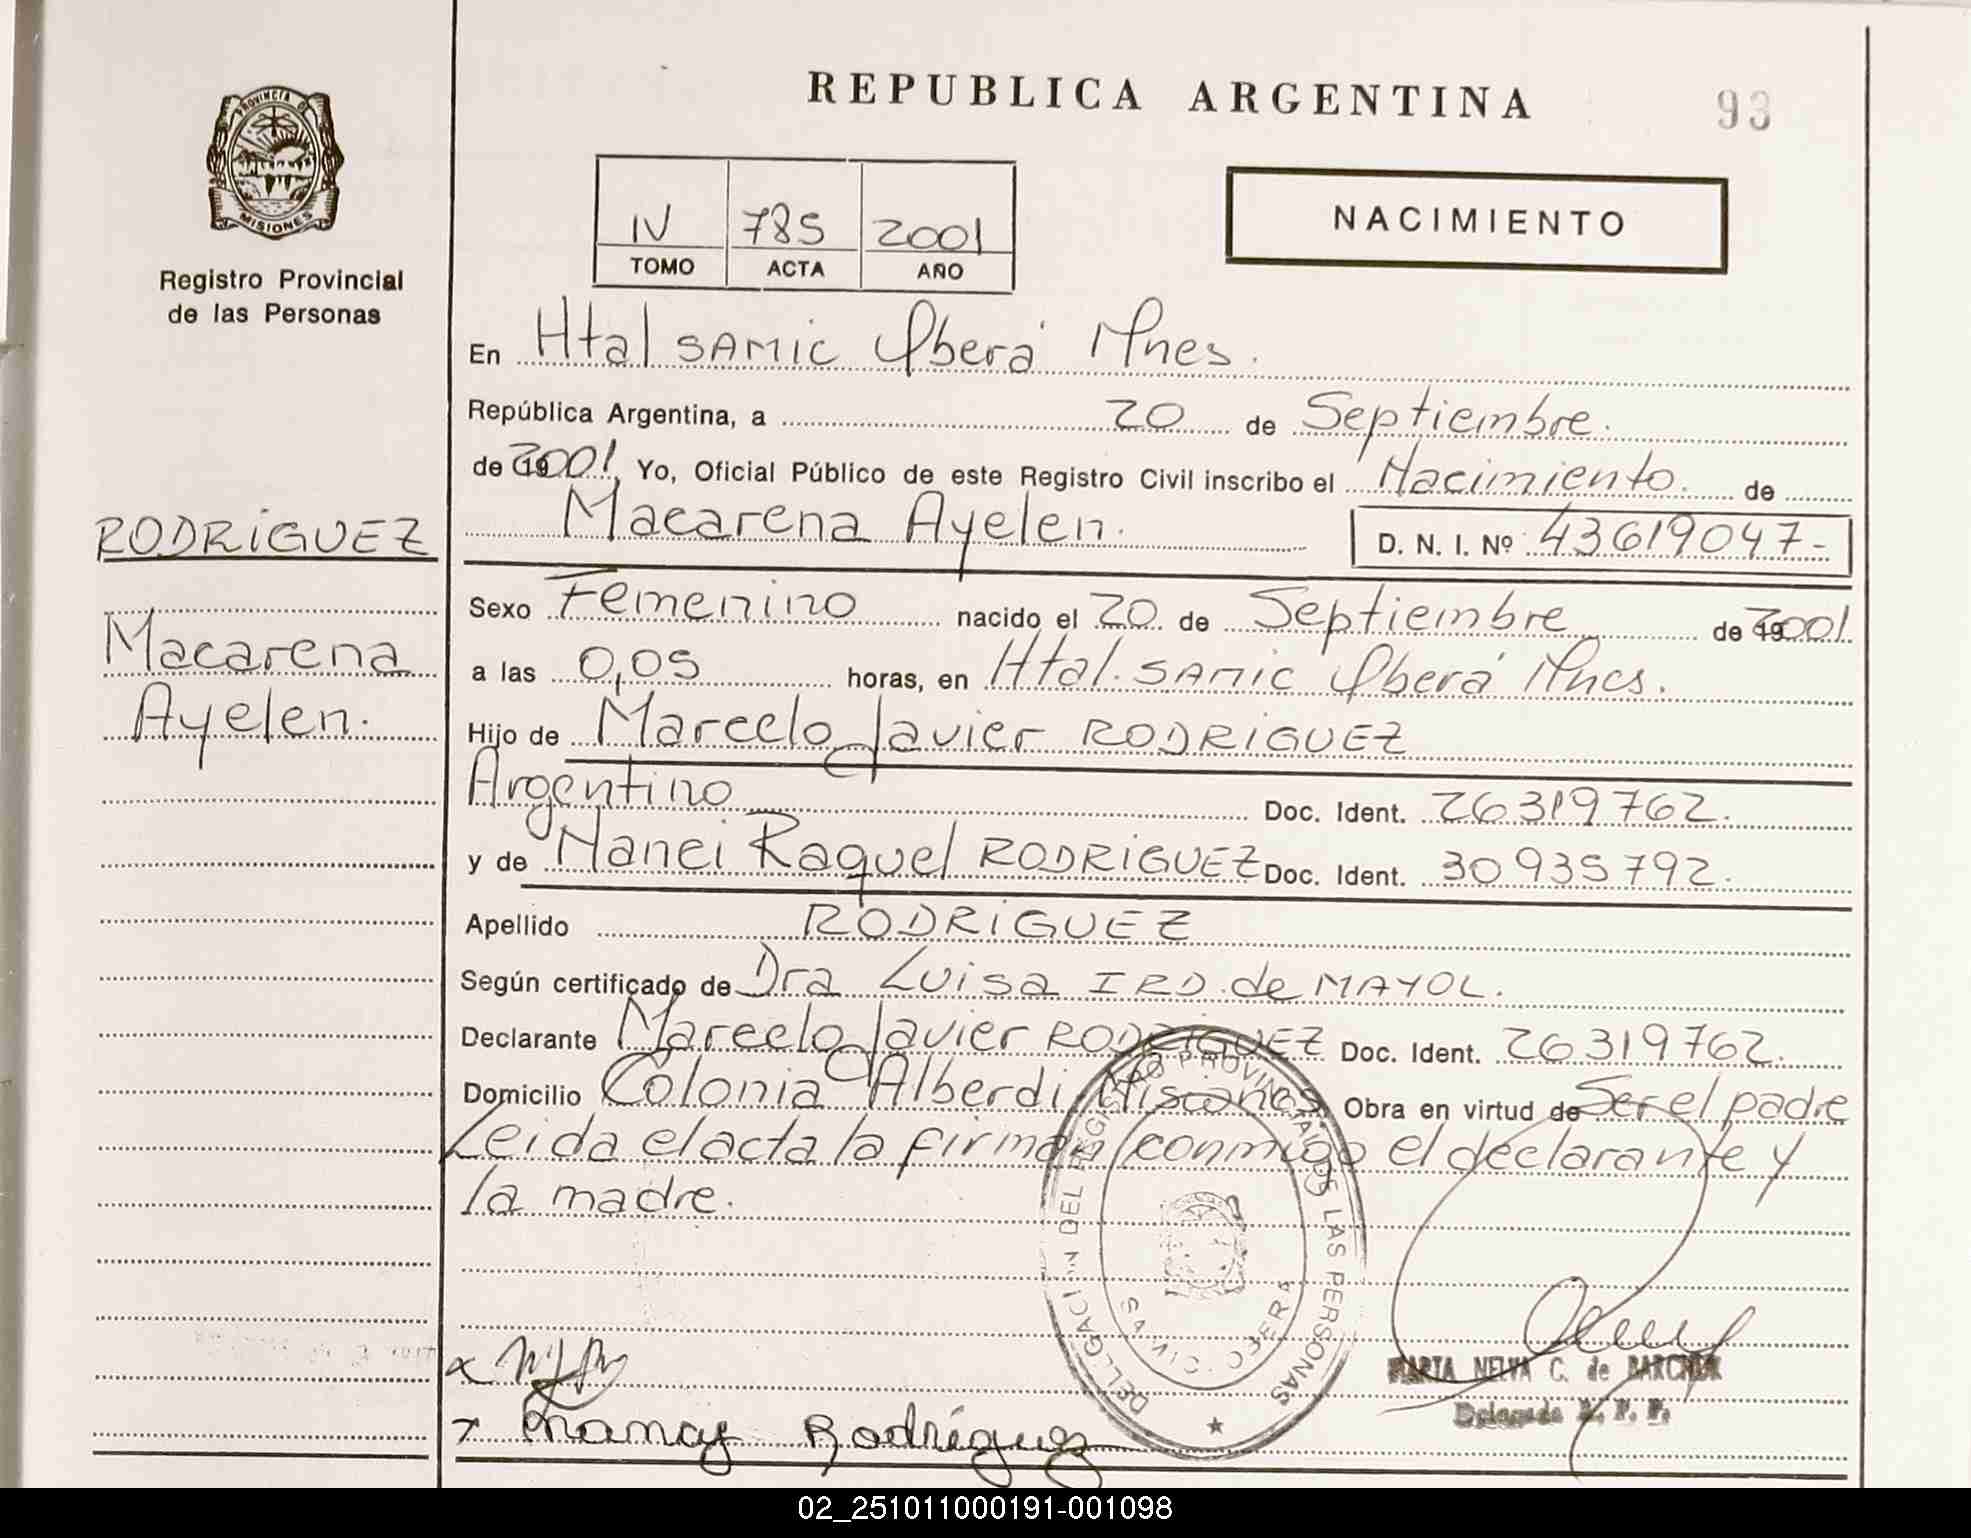 REPUBLICA ARGENTINA
93
PROVINCIA D
MISIONES
Registro Provincial
de las Personas
IV 785 2001
TOMO ACTA AÑO
NACIMIENTO
En Htal SAMIC Oberá Mnes.
República Argentina, a 20 de Septiembre.
de 2001 Yo, Oficial Público de este Registro Civil inscribo el Nacimiento. de
Macarena Ayelen. D. N. I. Nº 43619047-
RODRIGUEZ
Macarena
Ayelen.
Sexo Femenino nacido el 20 de Septiembre de 2001
a las 0,05 horas, en Htal. SAMIC Oberá Mnes.
Hijo de Marcelo Javier RODRIGUEZ
Argentino Doc. Ident. 26319762.
y de Nanci Raquel RODRIGUEZ Doc. Ident. 30935792.
Apellido RODRIGUEZ
Según certificado de Dra Luisa IRD. de MAYOL.
Declarante Marcelo Javier RODRIGUEZ Doc. Ident. 26319762.
Domicilio Colonia Alberdi Misiones Obra en virtud de Ser el padre
Leida el acta la firman conmigo el declarante y
la madre.
DELEGACION DEL REGISTRO PROVINCIAL DE LAS PERSONAS
OBERA
MARTA NELVA C. de
Delegada R. P. P.
Nancy Rodriguez
02_251011000191-001098